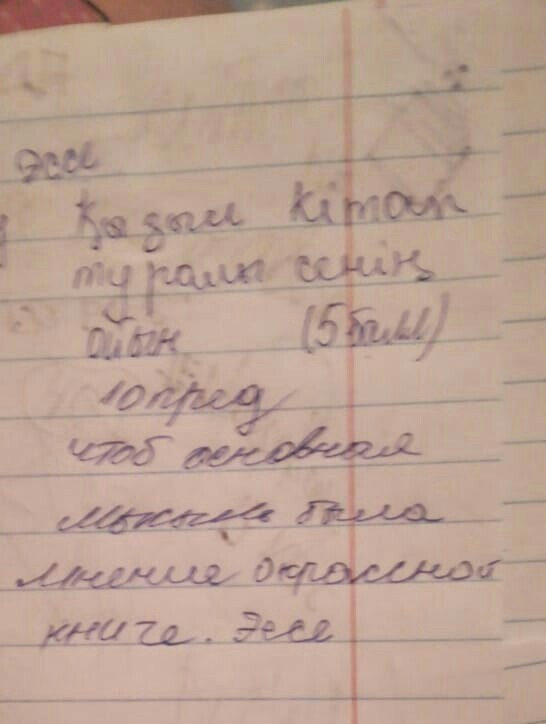 эссе
Қызыл кітап
туралы сенің
ойың (5 балл)
10 пред
чтоб основная
мысль была
мнение о красной
книге. Эссе